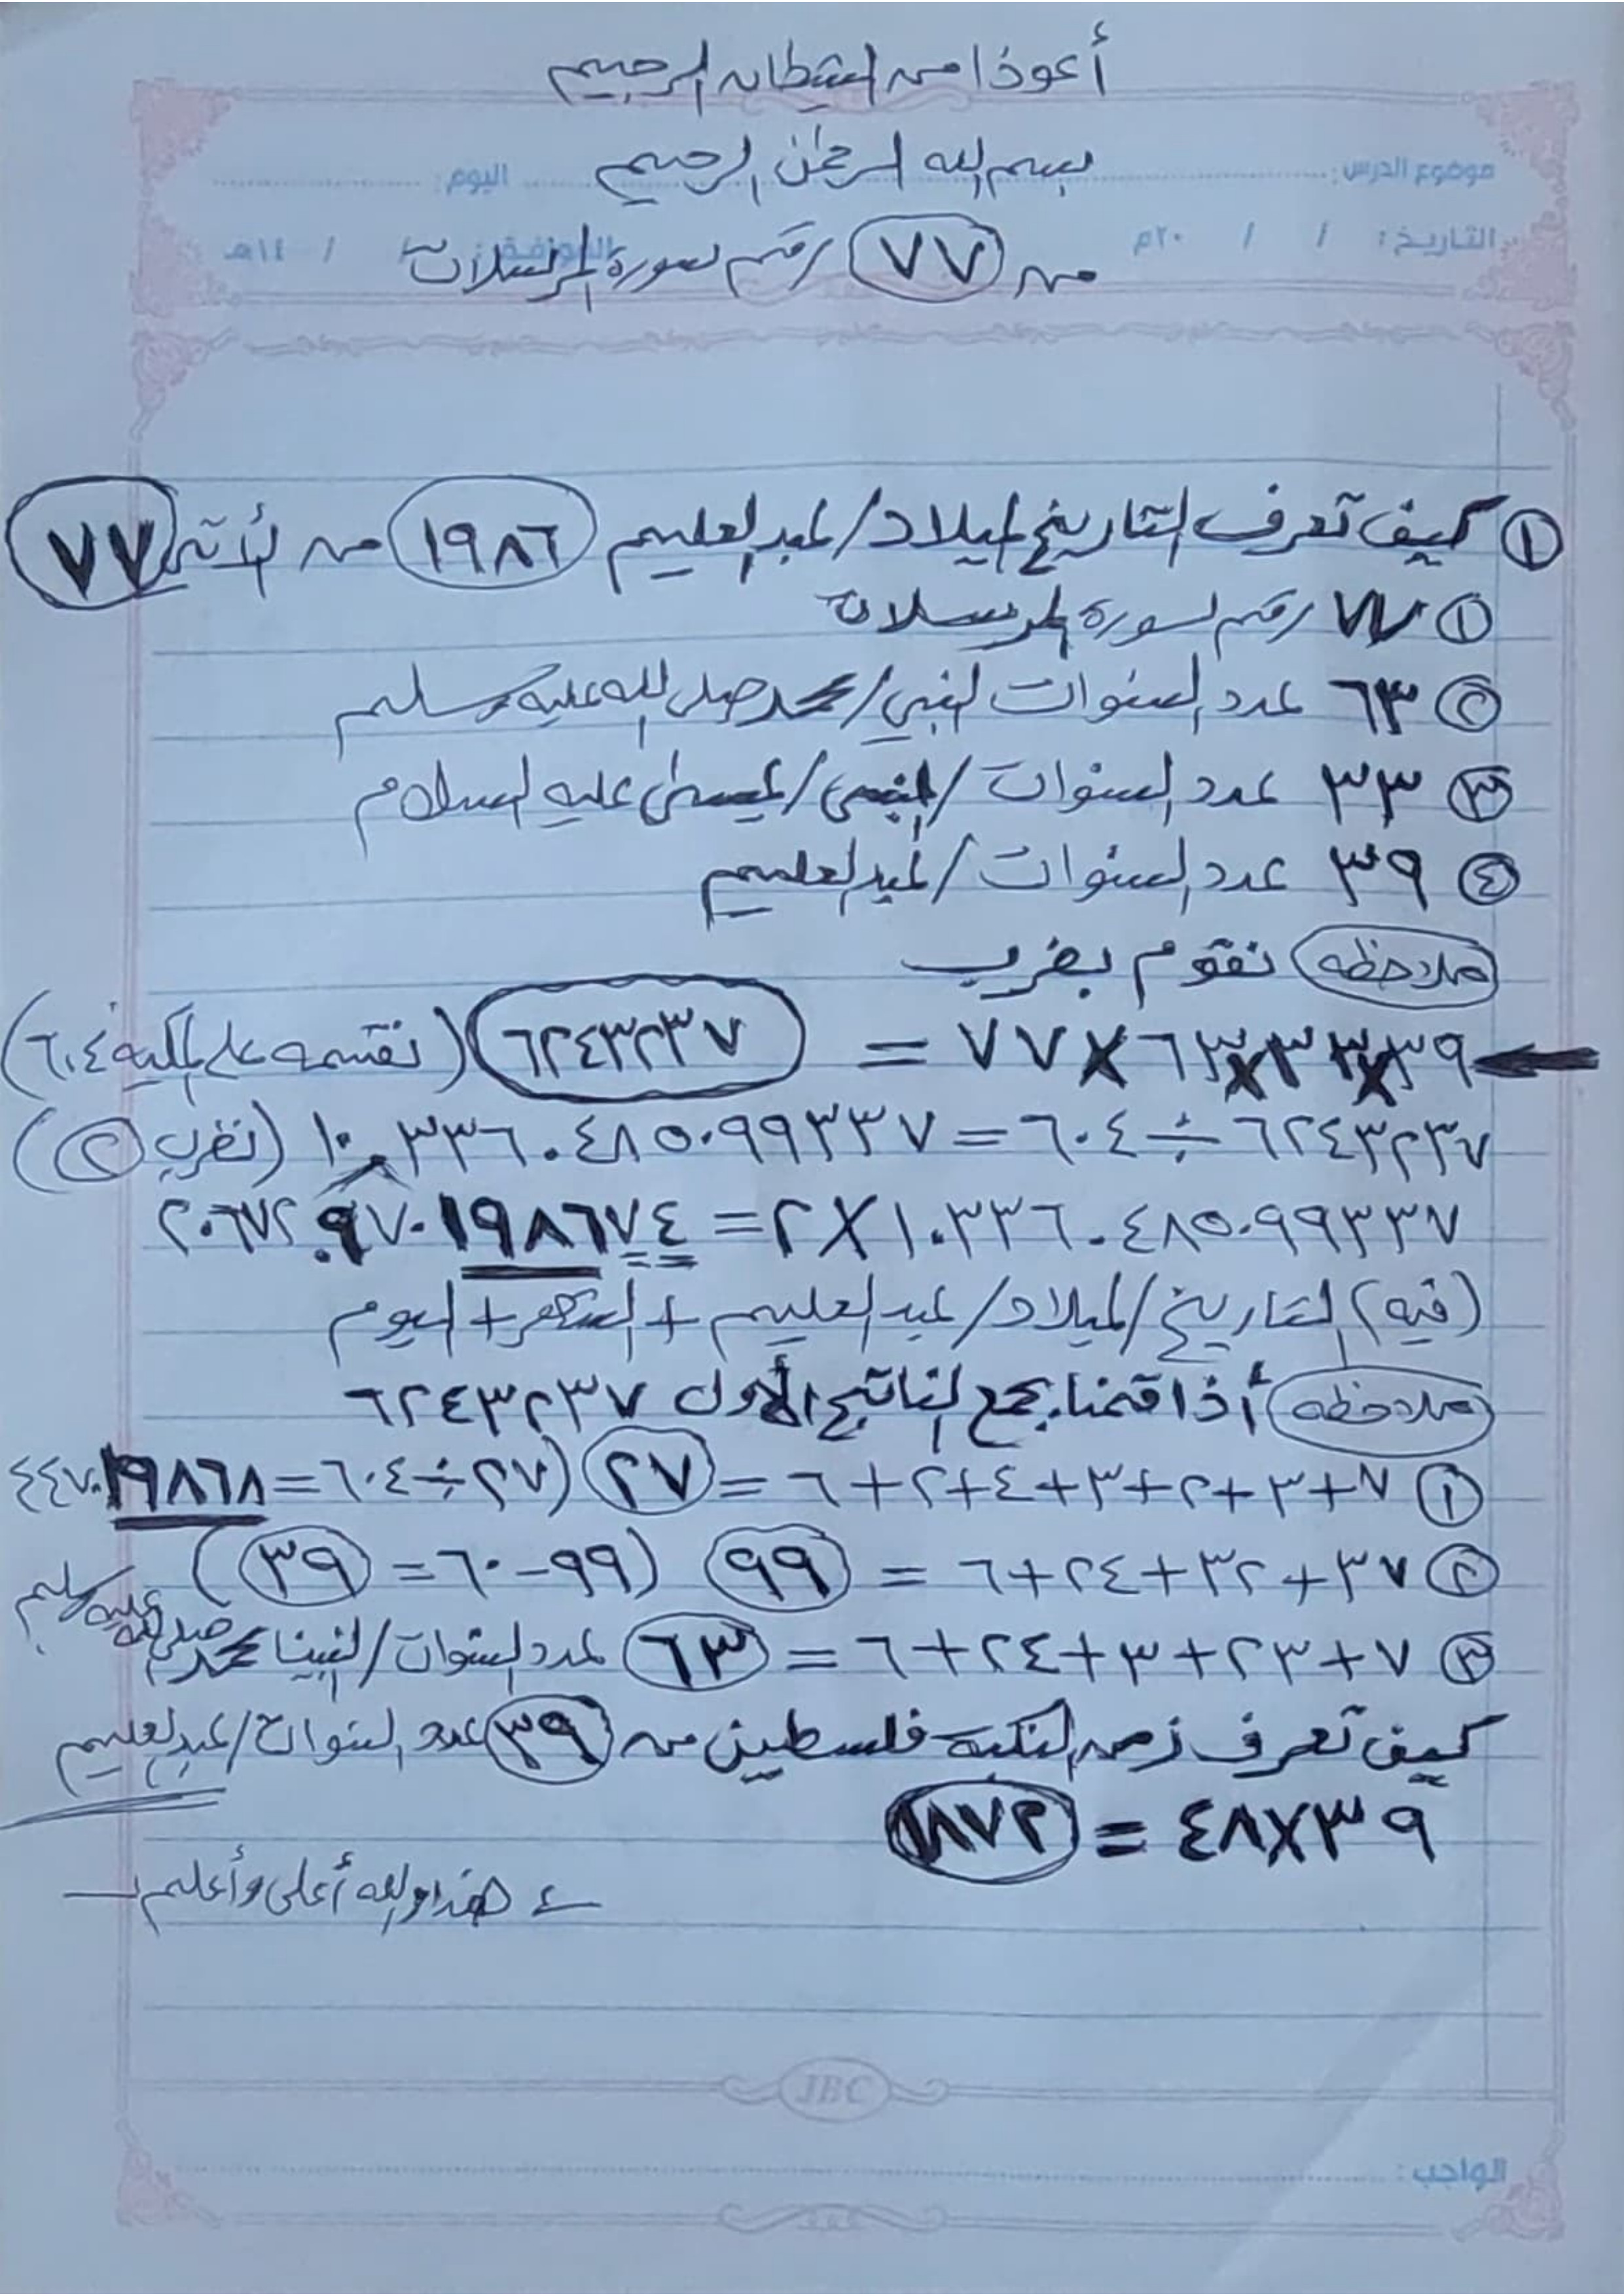 أعوذا من الشيطان الرجيم
بسم الله الرحمٰن الرحيم
موضوع الدرس: اليوم:
التاريخ: / / ٢٠م الموافق: / / ١٤هـ
من ٧٧ رقم سورة المرسلات
① كيف تعرف التاريخ لميلاد/عبدالعليم ١٩٨٦ من لأتي ٧٧
① ٧٧ رقم سورة المرسلات
② ٦٣ عدد السنوات النبي/محمد صلى الله عليه وسلم
③ ٣٣ عدد السنوات/النبي/عيسىٰ عليه السلام
④ ٣٩ عدد السنوات/عبدالعليم
ملاحظه نقوم بضرب
٣٩×٣٣×٦٣×٧٧ = ٦٢٤٣٢٣٧ (نقسمه على المكيه ٦٠٤)
٦٢٤٣٢٣٧ ÷ ٦٠٤ = ١٠٣٣٦.٤٨٥٠٩٩٣٣٧ (نضرب ②)
١٠٣٣٦.٤٨٥٠٩٩٣٣٧ × ٢ = ٢٠٦٧٢.٩٧٠١٩٨٦٧٤
(فيه) التاريخ/الميلاد/عبدالعليم + الشهر + اليوم
ملاحظه أذا قمنا بجمع الناتج الأول ٦٢٤٣٢٣٧
① ٧+٣+٢+٣+٤+٢+٦ = ٢٧ (٢٧ ÷ ٦٠٤ = ٤٤٧٠١٩٨٦٨
② ٣٧+٣٢+٢٤+٦ = ٩٩ (٩٩-٦٠ = ٣٩)
③ ٧+٢٣+٣+٢٤+٦ = ٦٣ عدد السنوات/النبينا محمد صلى الله عليه وسلم
كيف تعرف زمن النكبة فلسطين من ٣٩ عدد السنوات/عبدالعليم
٣٩×٤٨ = ١٨٧٢
هذا والله أعلى وأعلم
JBC
الواجب: